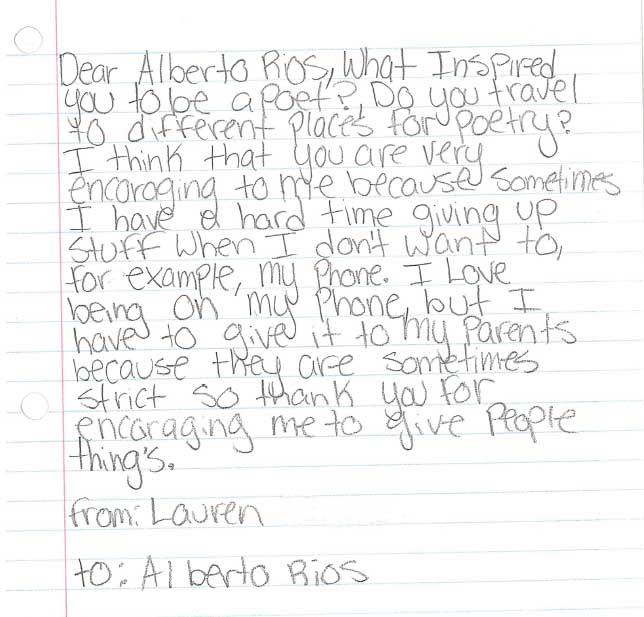 Dear Alberto Rios, What Inspired
you to be a poet?, Do you travel
to different places for poetry?
I think that you are very
encoraging to me because sometimes
I have a hard time giving up
stuff when I don't want to,
for example, my phone. I Love
being on my phone, but I
have to give it to my parents
because they are sometimes
strict so thank you for
encoraging me to give people
thing's.
from: Lauren
to: Alberto Rios